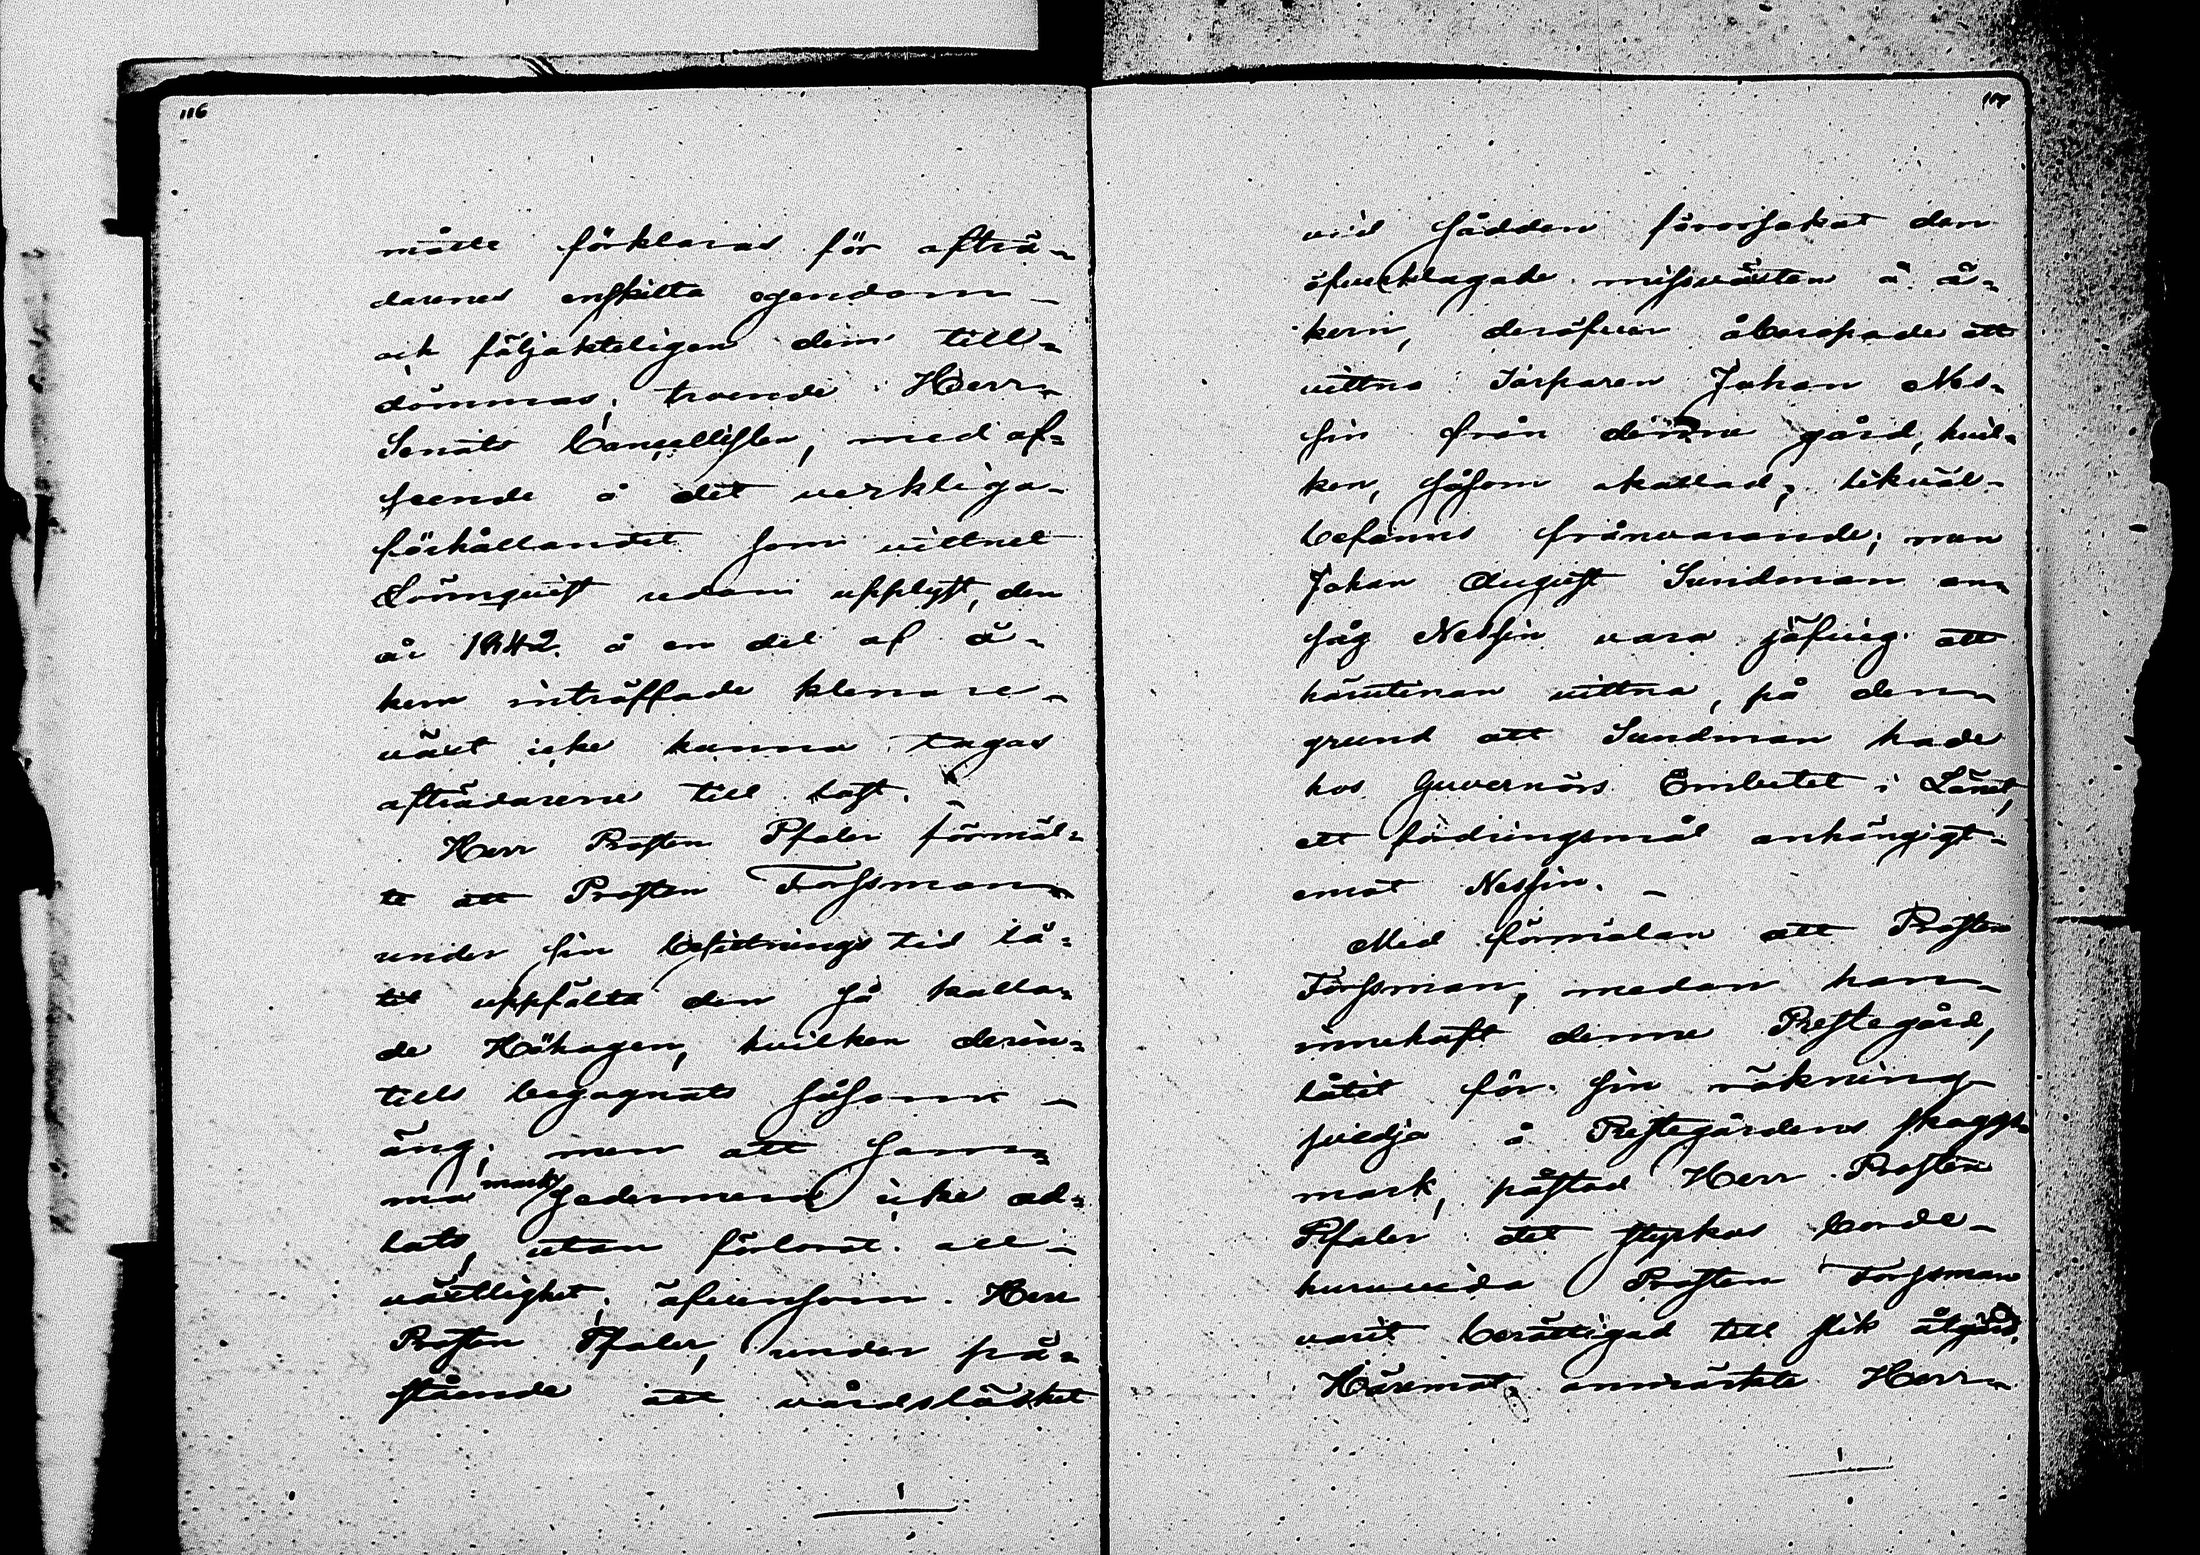 116
måtte förklaras för afträ-
darenes enskilta egendom
och följakteligen dem till-
dömmas; troende Herr
Senats Cancellisten, med af-
seende å det verkliga
förhållandet som vittnet
Lönnqvist redan upplyst, den
år 1842 å en del af å-
kern inträffade klenare
växt icke kunna tagas
afträdarene till last.
Herr Prosten Pfaler förmäl-
te att Prosten Forssman
under sin besittnings tid lå-
tit uppfälta den så kalla-
de Kohagen, hvilken derin-
tills begagnats såsom
äng; men att sam-
ma mark sedermera icke od-
lats, utan förlorat all
växtlighet; äfvensom Herr
Prosten Pfaler, under på-
stående att vårdslöshet
117
vid sådden förorsakat den
öfverklagade missväxten å å-
kern, deröfver åberopade att
vittna Torparen Johan Nes-
sin från denne gård, hvil-
ken, såsom kallad, likväl
befanns frånvarande; men
Johan August Sundman an-
såg Nessin vara jäfvig att
härutinnan vittna, på den
grund att Sundman hade
hos Guvernörs Embetet i Länet,
ett fordringsmål anhängigt
emot Nessin.
Med förmälan att Prosten
Forssman, medan han
innehaft denne Prestegård,
låtit för sin räkning
svedja å Prestegårdens skogs-
mark, påstod Herr Prosten
Pfaler att styrkas borde
huruvida Prosten Forssman
varit berättigad till slik åtgärd.
Häremot anmärkte Herr